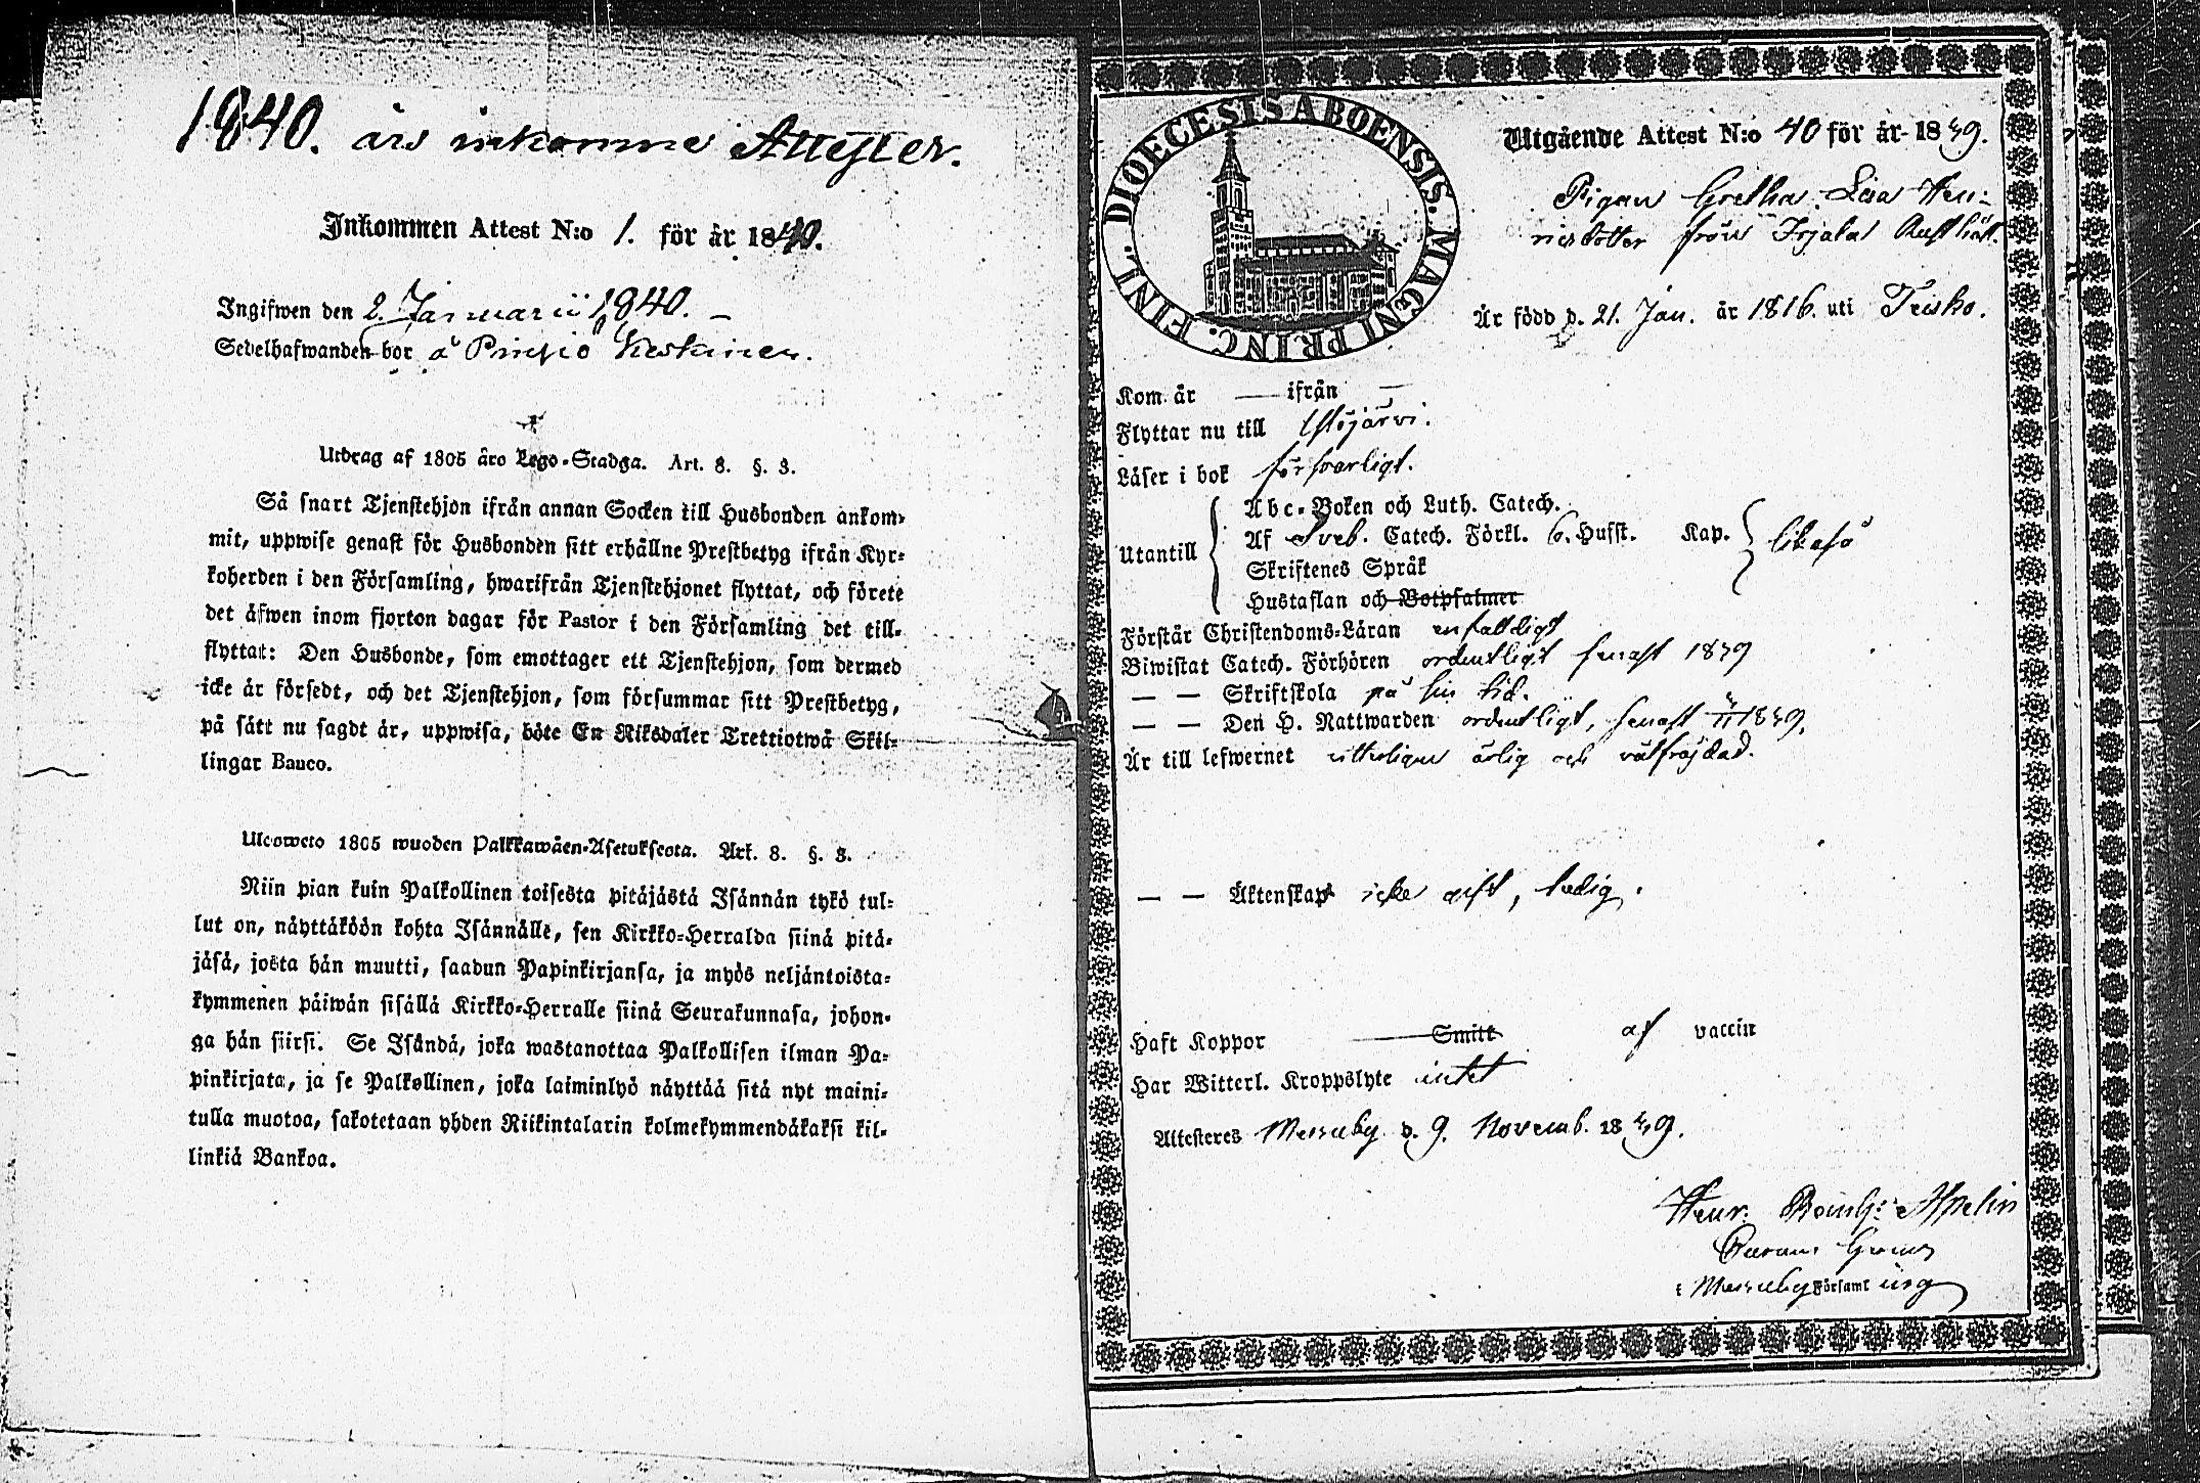 1840. års inkomne Attester.
Inkommen Attest N:o 1. för år 1840.
Ingifwen den 2. Januarii 1840. –
Sedelhafwanden bor å Pinsiö Keskinen.
Utdrag af 1805 års Lego-Stadga. Art. 8. §. 3.
Så snart Tjenstehjon ifrån annan Socken till Husbonden ankom-
mit, uppwise genast för Husbonden sitt erhållne Prestbetyg ifrån Kyr-
koherden i den Församling, hwarifrån Tjenstehjonet flyttat, och förete
det äfwen inom fjorton dagar för Pastor i den Församling det till-
flyttat: Den Husbonde, som emottager ett Tjenstehjon, som dermed
icke är försedt, och det Tjenstehjon, som försummar sitt Prestbetyg,
på sätt nu sagdt är, uppwisa, böte En Riksdaler Trettiotwå Skil-
lingar Banco.
Ulosweto 1805 wuoden Palkkawäen-Asetuksesta. Art. 8. §. 3.
Niin pian kuin Palkollinen toisesta pitäjästä Isännän tykö tul-
lut on, näyttäköön kohta Isännälle, sen Kirkko-Herralda siinä pitä-
jäsä, josta hän muutti, saadun Papinkirjansa, ja myös neljäntoista-
kymmenen päiwän sisällä Kirkko-Herralle siinä Seurakunnasa, johon-
ga hän siirsi. Se Isändä, joka wastanottaa Palkollisen ilman Pa-
pinkirjata, ja se Palkollinen, joka laiminlyö näyttää sitä nyt maini-
tulla muotoa, sakotetaan yhden Riikintalarin kolmekymmendäkaksi kil-
linkiä Bankoa.
DIOECESIS ABOENSIS. MAGNI PRINC. FINL.
Utgående Attest N:o 40 för år 1839.
Pigan Gretha Lisa Hen-
ricsdotter från Irjala Rusthåll.
Är född d. 21. Jan. år 1816. uti Teisko.
Kom år — ifrån —
Flyttar nu till Ylöjärvi.
Läser i bok försvarligt.
Utantill
Abc-Boken och Luth. Catech.
Af Sveb. Catech. Förkl. 6. Husst. Kap. likaså
Skriftenes Språk
Hustaflan och Botpsalmer
Förstår Christendoms-Läran enfaldigt
Biwistat Catech. Förhören ordentligt senast 1839
— — Skriftskola på sin tid.
— — Den H. Nattwarden ordentligt, senast 1839.
Är till lefwernet witterligen ärlig och välfrejdad.
— — Äktenskap icke gift, ledig.
Haft Koppor — Smitt af vaccin
Har Witterl. Kroppslyte intet
Attesteres Messuby d. 9. Novemb. 1839.
Henr. Appelin
i Messuby Församling